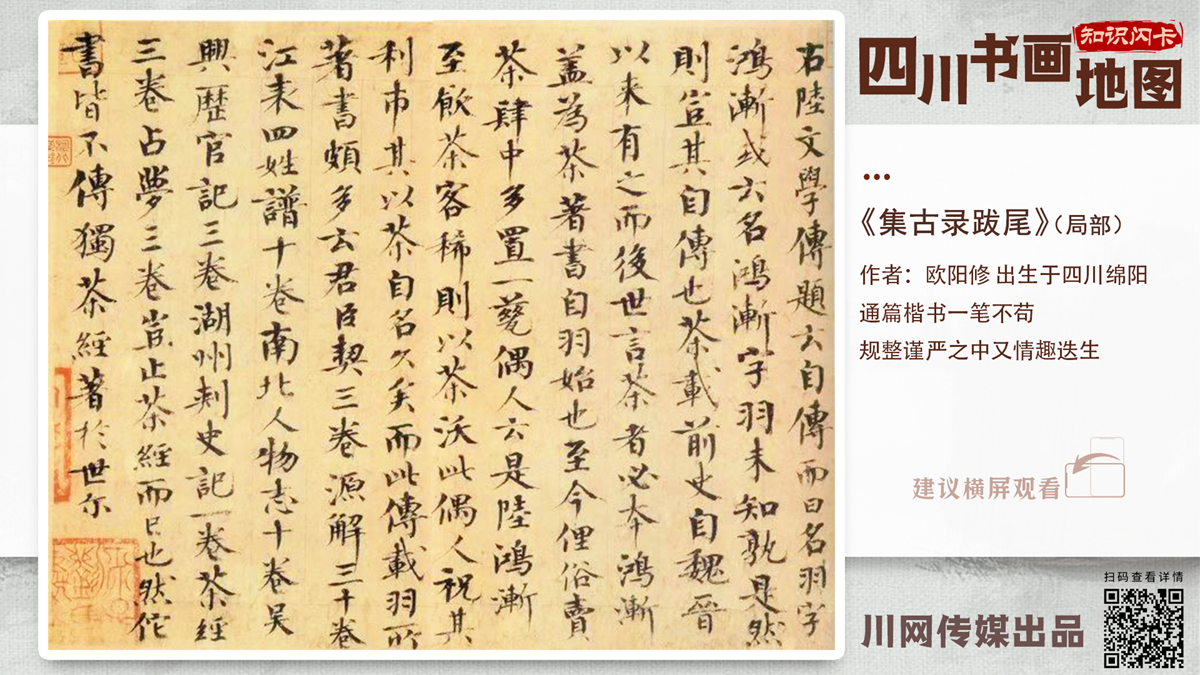 右陸文學傳題云自傳而曰名羽字
鴻漸或云名鴻漸字羽未知孰是然
則豈其自傳也茶載前史自魏晉
以来有之而後世言茶者必本鴻漸
盖為茶著書自羽始也至今俚俗賣
茶肆中多置一甆偶人云是陸鴻漸
至飲茶客稀則以茶沃此偶人祝其
利市其以茶自名久矣而此傳載羽所
著書頗多云君臣契三卷源解三十卷
江表四姓譜十卷南北人物志十卷吳
興歴官記三卷湖州刺史記一卷茶經
三卷占夢三卷豈止茶經而已也然佗
書皆不傳獨茶經著於世尔
四川书画地图
知识闪卡
•••
《集古录跋尾》(局部)
作者：欧阳修 出生于四川绵阳
通篇楷书一笔不苟
规整谨严之中又情趣迭生
建议横屏观看
扫码查看详情
川网传媒出品